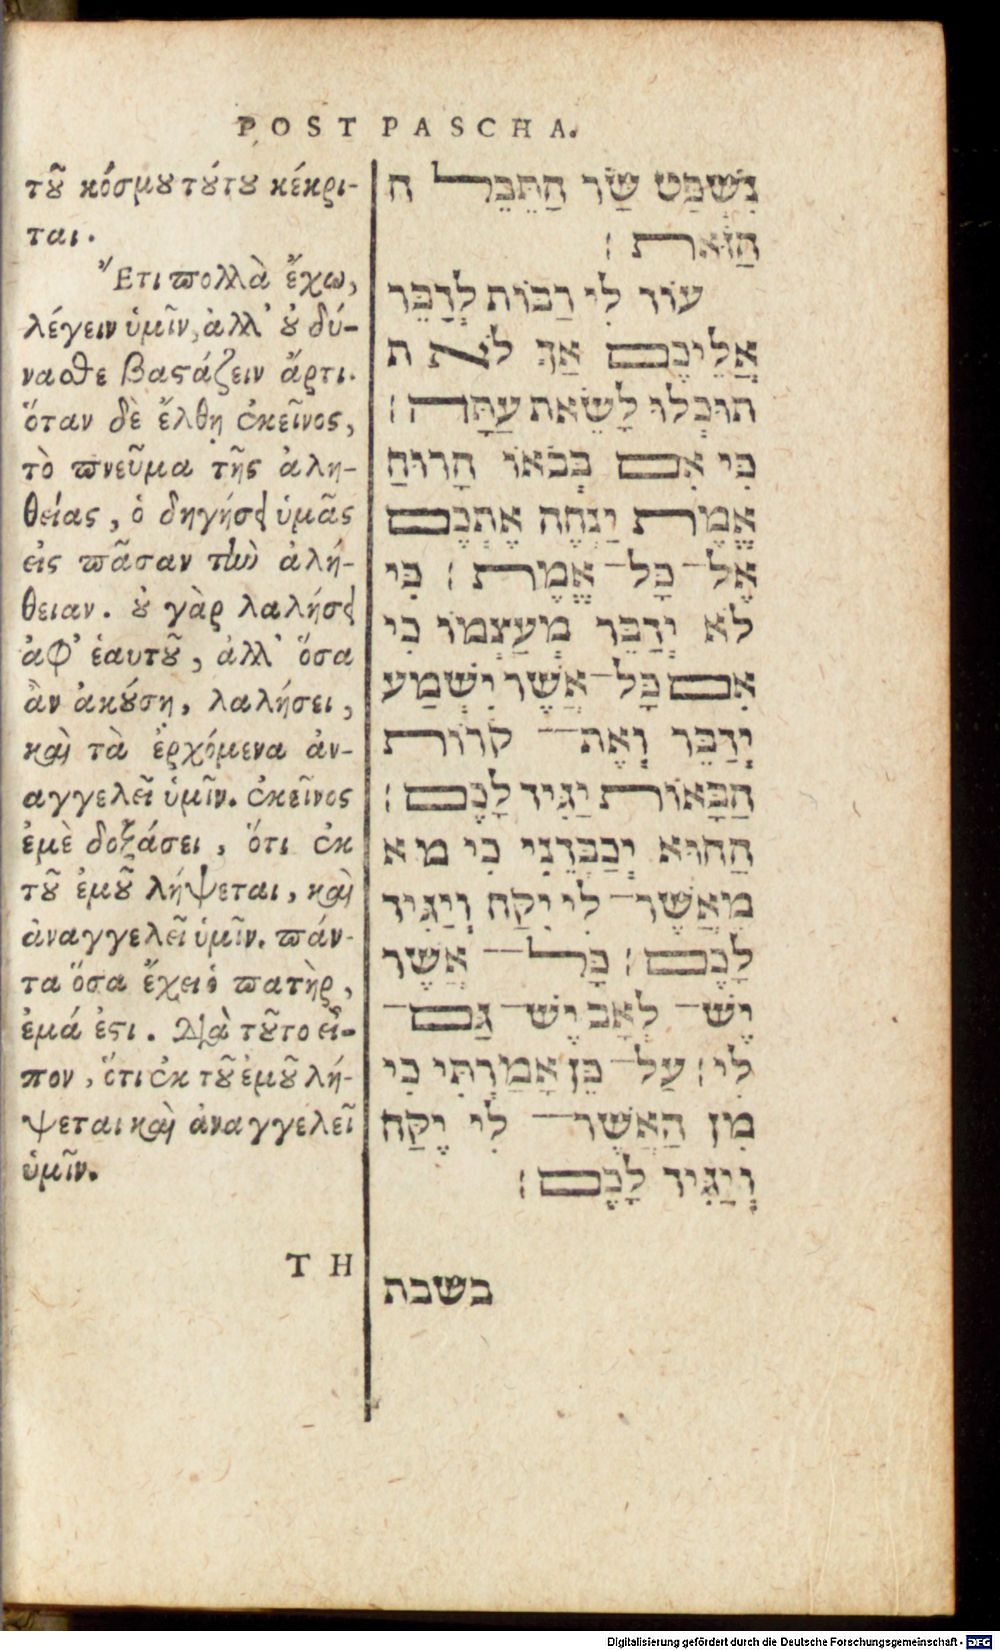 POST PASCHA.
τȣ͂ κόσμȣ τȣ́τȣ κέκρι-
ται.
Ἔτι πολλὰ ἔχω,
λέγειν ὑμῖν, ἀλλ' ȣ̓ δύ-
ναϑε βαϛάζειν ἄρτι.
ὅταν δὲ ἔλθῃ ἐκεῖνος,
τὸ πνεῦμα τῆς ἀλη-
θείας, ὁ δηγήσει ὑμᾶς
εἰς πᾶσαν τὴν ἀλή-
θειαν. ȣ̓ γὰρ λαλήσει
ἀφ' ἑαυτȣ͂, ἀλλ' ὅσα
ἂν ἀκȣ́σῃ, λαλήσει,
καὶ τὰ ἐρχόμενα ἀν-
αγγελεῖ ὑμῖν. ἐκεῖνος
ἐμὲ δοξάσει, ὅτι ἐκ
τȣ͂ ἐμȣ͂ λήψεται, καὶ
ἀναγγελεῖ ὑμῖν. πάν-
τα ὅσα ἔχει ὁ πατὴρ,
ἐμά ἐϛι. Διὰ τȣ͂το εἶ-
πον, ὅτι ἐκ τȣ͂ ἐμȣ͂ λή-
ψεται καὶ ἀναγγελεῖ
ὑμῖν.
ΤΗ
נִשְׁפַּט שַׂר הַתֵּבֵל ה
הַזֹּאת ׃
עוֹד לִי רַבּוֹת לְדַבֵּר
אֲלֵיכֶם אַךְ לֹא ת
תוּכְלוּ לָשֵׂאת עַתָּה ׃
כִּי אִם בְּבֹאוֹ הָרוּחַ
אֱמֶת יַנְחֶה אֶתְכֶם
אֶל־ כָּל־ אֱמֶת ׃ כִּי
לֹא יְדַבֵּר מְעַצְמוֹ כִּי
אִם כָּל־ אֲשֶׁר יִשְׁמַע
יְדַבֵּר וְאֶת־ קֹרוֹת
הַבָּאוֹת יַגִּיד לָכֶם ׃
הַהוּא יְכַבְּדֵנִי כִּי מ א
מֵאֲשֶׁר־ לִי יִקַּח וְיַגִּיד
לָכֶם ׃ כָּל־ אֲשֶׁר
יֶשׁ־ לְאָב יֶשׁ־ גַּם־
לִי ׃ עַל־ כֵּן אָמַרְתִּי כִּי
מִן הַאֲשֶׁר־ לִי יִקַּח
וְיַגִּיד לָכֶם ׃
בשבת
Digitalisierung gefördert durch die Deutsche Forschungsgemeinschaft - DFG